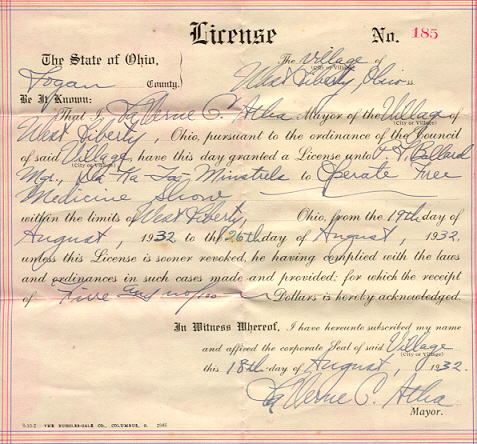 License No. 185
The State of Ohio, The Village of
(City or Village)
Logan County. West Liberty, Ohio ss.
Be It Known:
That I, La Verne C. Atha Mayor of the Village of
(City or Village)
West Liberty, Ohio, pursuant to the ordinance of the Council
of said Village, have this day granted a License unto Ballard
(City or Village)
Mgr. Minstrels to Operate Free
Medicine Show
within the limits of West Liberty, Ohio, from the 19th day of
August, 1932 to the 26th day of August, 1932.
unless this License is sooner revoked, he having complied with the laws
and ordinances in such cases made and provided; for which the receipt
of Five and no/100 Dollars is hereby acknowledged.
In Witness Whereof, I have hereunto subscribed my name
and affixed the corporate Seal of said Village
(City or Village)
this 18th day of August, 1932.
La Verne C. Atha
Mayor.
THE RUGGLES-GALE CO., COLUMBUS, O.